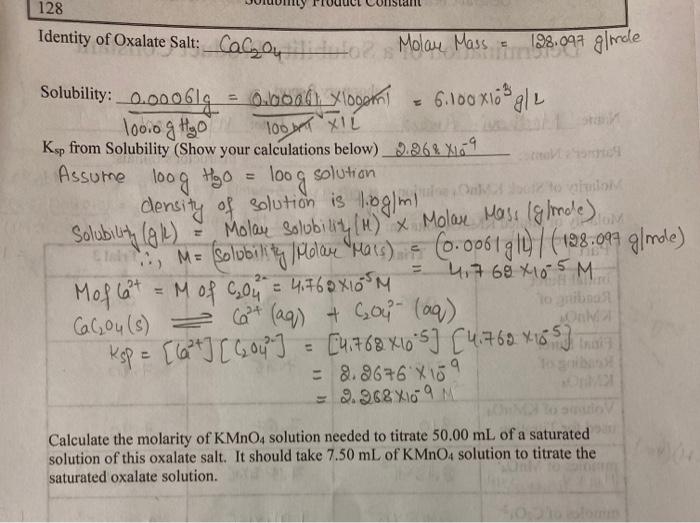 128
Solubility Product Constant
Identity of Oxalate Salt: CaC₂O₄ Molar Mass = 128.097 g/mole
Solubility: 0.00061g / 100.0 g H₂O = 0.00061 x 1000ml / 100 ml x 1L = 6.100 x 10⁻³ g/L
Ksp from Solubility (Show your calculations below) 2.268 x10⁻⁹
Assume 100g H₂O = 100g solution
density of solution is 1.0g/ml
Solubility (g/L) = Molar Solubility (M) x Molar Mass (g/mole)
∴, M = (solubility/Molar Mass) = (0.0061 g/L) / (128.097 g/mole)
= 4.762 x10⁻⁵ M
M of Ca²⁺ = M of C₂O₄²⁻ = 4.762 x10⁻⁵ M
CaC₂O₄ (s) ⇌ Ca²⁺ (aq) + C₂O₄²⁻ (aq)
Ksp = [Ca²⁺] [C₂O₄²⁻] = [4.762 x10⁻⁵] [4.762 x10⁻⁵]
= 2.2676 x10⁻⁹
= 2.268 x10⁻⁹ M
Calculate the molarity of KMnO₄ solution needed to titrate 50.00 mL of a saturated
solution of this oxalate salt. It should take 7.50 mL of KMnO₄ solution to titrate the
saturated oxalate solution.